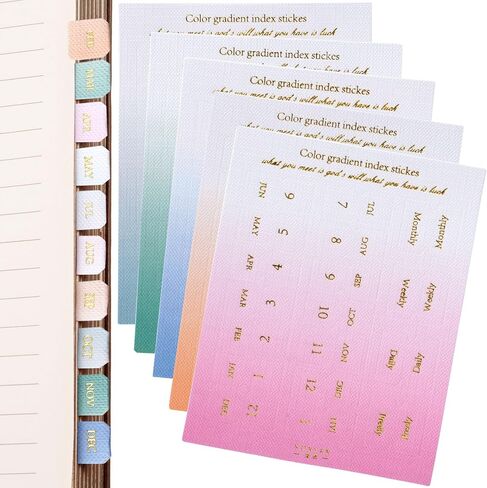 FEB
MAR
APR
MAY
JUL
AUG
OCT
NOV
DEC
Color gradient index stickes
but you meet is god's will,what you have is luck
Color gradient index stickes
Color gradient index stickes
what you meet is god's will,what you have is luck
Color gradient index stickes
what you meet is god's will,what you have is luck
Color gradient index stickes
what you meet is god's will,what you have is luck
JUN 6 7 JUL Monthly Monthly
MAY 5 8 AUG
APR 4 9 SEP Weekly Weekly
MAR 3 10 OCT
FEE 2 11 NOV Daily Daily
JAN 1 12 DEC
DEC 12 1 Freely Freely